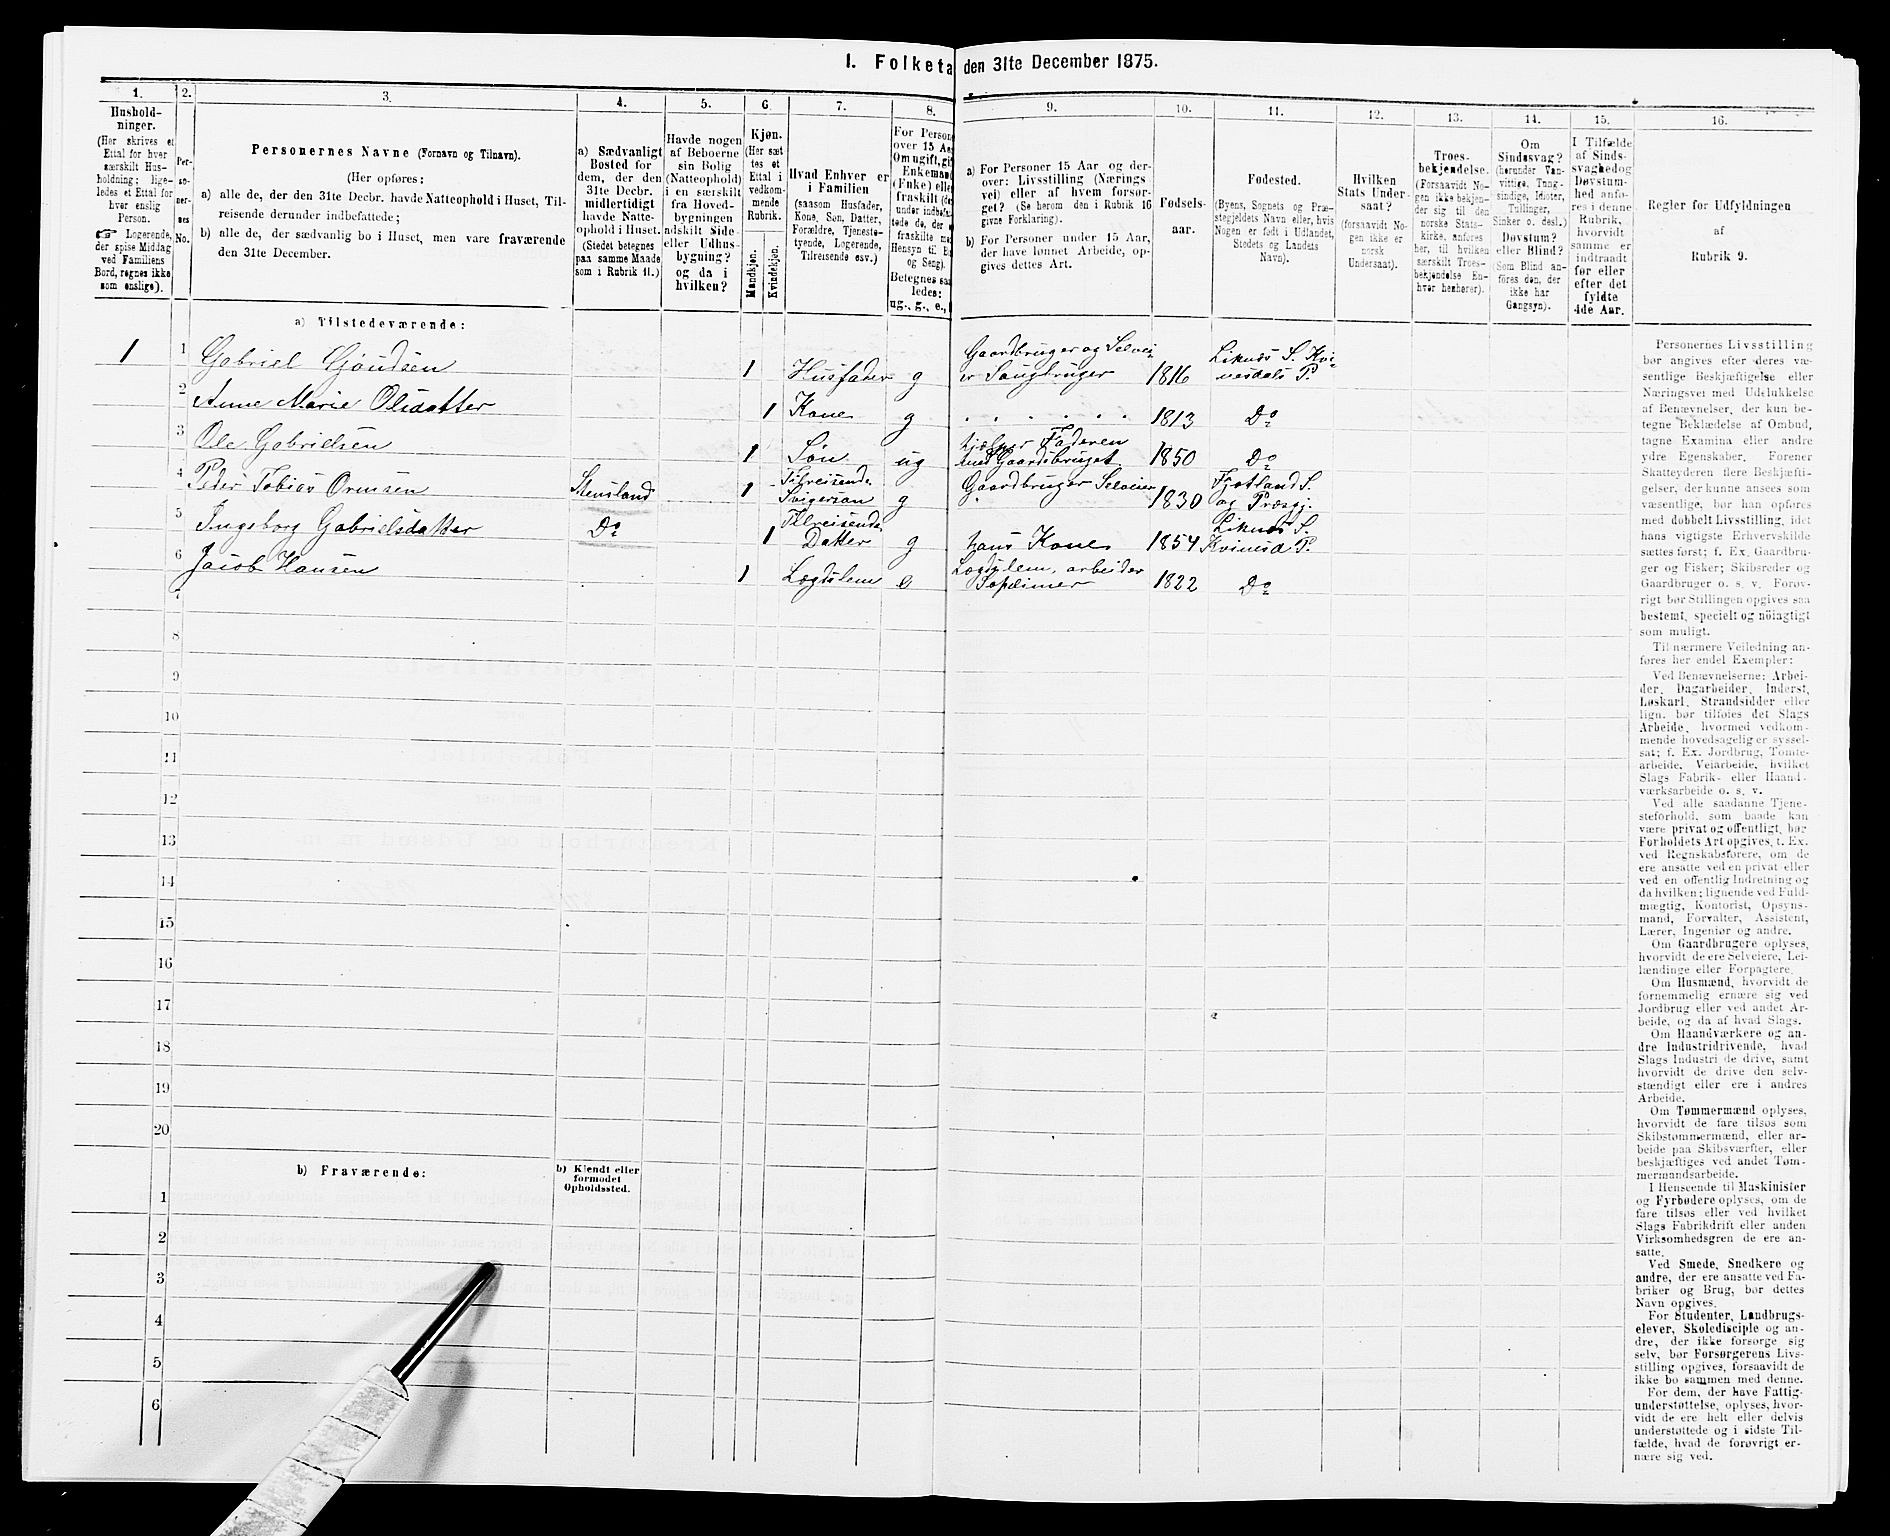 I. Folketa den 31te December 1875.
1.
Hushold-
ninger.
(Her skrives et
Ettal for hver
særskilt Hus-
holdning; lige-
ledes et Ettal for
hver enslig
Person.
☞ Logerende,
der spise Middag
ved Familiens
Bord, regnes ikke
som enslige).
2.
Per-
so-
ner-
nes
No.
3.
Personernes Navne (Fornavn og Tilnavn).
(Her opføres:
a) alle de, der den 31te Decbr. havde Natteophold i Huset, Til-
reisende derunder indbefattede;
b) alle de, der sædvanlig bo i Huset, men vare fraværende
den 31te December.
4.
a) Sædvanligt
Bosted for
dem, der den
31te Decbr.
midlertidigt
havde Natte-
ophold i Huset.
(Stedet betegnes
paa samme Maade
som i Rubrik 11.)
5.
Havde nogen
af Beboerne
sin Bolig
(Natteophold)
i en særskilt
fra Hoved-
bygningen
adskilt Side-
eller Udhus-
bygning?
og da i
hvilken?
6.
Kjøn.
(Her sæt
tes et
Ettal i
vedkom-
mende
Rubrik.
Mandkjøn.
Kvindekjøn.
7.
Hvad Enhver er
i Familien
(saasom Husfader,
Kone, Søn, Datter,
Forældre, Tjeneste-
tyende, Logerende,
Tilreisende osv.)
8.
For Person
over 15 Aa
Om ugift, gif
Enkeman
(Enke) elle
fraskilt (de
under indbefa
tede de, der e
fraskilte m
Hensyn til B
og Seng).
Betegnes saa
ledes:
ug., g., e.,
9.
a) For Personer 15 Aar og der-
over: Livsstilling (Nærings
vei) eller af hvem forsør-
get? (Se herom den i Rubrik 16
givne Forklaring).
b) For Personer under 15 Aar,
der have lønnet Arbeide, op-
gives dettes Art.
10.
Fødsels-
aar.
11.
Fødested.
(Byens, Sognets og Præ-
stegjeldets Navn eller, hvis
Nogen er født i Udlandet,
Stedets og Landets
Navn).
12.
Hvilken
Stats Under-
saat?
(forsaavidt No-
gen ikke er
norsk
Undersaat).
13.
Troes-
bekjendelse.
(Forsaavidt No-
gen ikke bekjen-
der sig til den
norske Stats-
kirke, anføres
her, til hvilken
særskilt Troes-
bekjendelse En-
hver henhører).
14.
Om
Sindssvag?
(herunder Van-
vittige, Tung-
sindige, Idioter,
Tullinger,
Sinker o. desl.)
Døvstum?
eller Blind?
(Som Blind an-
føres den, der
ikke har
Gangsyn).
15.
I Tilfælde
af Sinds-
svaghedog
Døvstum-
hed anfø-
res i denne
Rubrik,
hvorvidt
samme er
indtraadt
før eller
efter det
fyldte
4de Aar.
16.
Regler for Udfyldningen
af
Rubrik 9.
a) Tilstedeværende:
1 1 Gabriel Gjøudsen 1 Husfader g Gaardbruger og Selvei-
er Saugbruger 1816 Liknæs S. Kvi-
nesdals P.
2 Anne Marie Olsdatter 1 Kone g 1813 Do
3 Ole Gabrielsen 1 Søn ug hjælper Faderen
med Gaardsbruget 1850 Do
4 Peder Tobias Ormsen Stensland 1 Tilreisende
Svigersøn g Gaardbruger Selveier 1830 Fjotland S.
og Præsgj.
5 Ingeborg Gabrielsdatter Do 1 Tilreisende
Datter g hans Kone 1854 Liknæs S.
Kvinesd P.
6 Jacob Hansen 1 Lægdslem e Lægdslem, arbeider
1822 Do
7
8
9
10
11
12
13
14
15
16
17
18
19
20
b) Fraværende:
b) Kjendt eller
formodet
Opholdssted.
1
2
3
4
5
6
Personernes Livsstilling
bør angives efter deres væ-
sentlige Beskjæftigelse eller
Næringsvei med Udelukkelse
af Benævnelser, der kun be-
tegne Beklædelse af Ombud,
tagne Examina eller andre
ydre Egenskaber. Forener
Skatteyderen flere Beskjæfti-
gelser, der kunne ansees som
væsentlige, bør han opføres
med dobbelt Livsstilling, idet
hans vigtigste Erhvervskilde
sættes først; f. Ex. Gaardbru-
ger og Fisker; Skibsreder og
Gaardbruger o. s. v. Forøv-
rigt bør Stillingen opgives saa
bestemt, specielt og nöiagtigt
som muligt.
Til nærmere Veiledning an-
føres her endel Exempler:
Ved Benævnelserne: Arbei-
der, Dagarbeider, Inderst,
Løskarl, Strandsidder eller
lign. bør tilføies det Slags
Arbeide, hvormed vedkom-
mende hovedsagelig er syssel-
sat; f. Ex. Jordbrug, Tomte-
arbeide, Veiarbeide, hvilket
Slags Fabrik- eller Haand-
værksarbeide o. s. v.
Ved alle saadanne Tjene-
steforhold, som baade kan
være privat og offentligt, bør
Forholdets Art opgives, t. Ex.
ved Regnskabsførere, om de
ere ansatte ved en privat eller
ved en offentlig Indretning og
da hvilken; lignende ved Fuld-
mægtig, Kontorist, Opsyns-
mand, Forvalter, Assistent,
Lærer, Ingeniør og andre.
Om Gaardbrugere oplyses,
hvorvidt de ere Selveiere, Lei-
lændinge eller Forpagtere.
Om Husmænd, hvorvidt de
fornemmelig ernære sig ved
Jordbrug eller ved andet Ar-
beide, og da af hvad Slags.
Om Haandværkere og an-
dre Industridrivende, hvad
Slags Industri de drive, samt
hvorvidt de drive den selv-
stændigt eller ere i andres
Arbeide.
Om Tømmermænd oplyses,
hvorvidt de fare tilsøs som
Skibstømmermænd, eller ar-
beide paa Skibsværfter, eller
beskjæftiges ved andet Tøm-
mermandsarbeide.
I Henseende til Maskinister
og Fyrbødere oplyses, om de
fare tilsøs eller ved hvilket
Slags Fabrikdrift eller anden
Virksomhedsgren de ere an-
satte.
Ved Smede, Snedkere og
andre, der ere ansatte ved Fa-
briker og Brug, bør dettes
Navn opgives.
For Studenter, Landbrugs-
elever, Skoledisciple og an-
dre, der ikke forsørge sig
selv, bør Forsørgerens Livs-
stilling opgives, forsaavidt de
ikke bo sammen med denne.
For dem, der have Fattig-
understøttelse, oplyses, hvor-
vidt de ere helt eller delvis
understøttede og i sidste Til-
fælde, hvad de forøvrigt er-
nære sig ved.